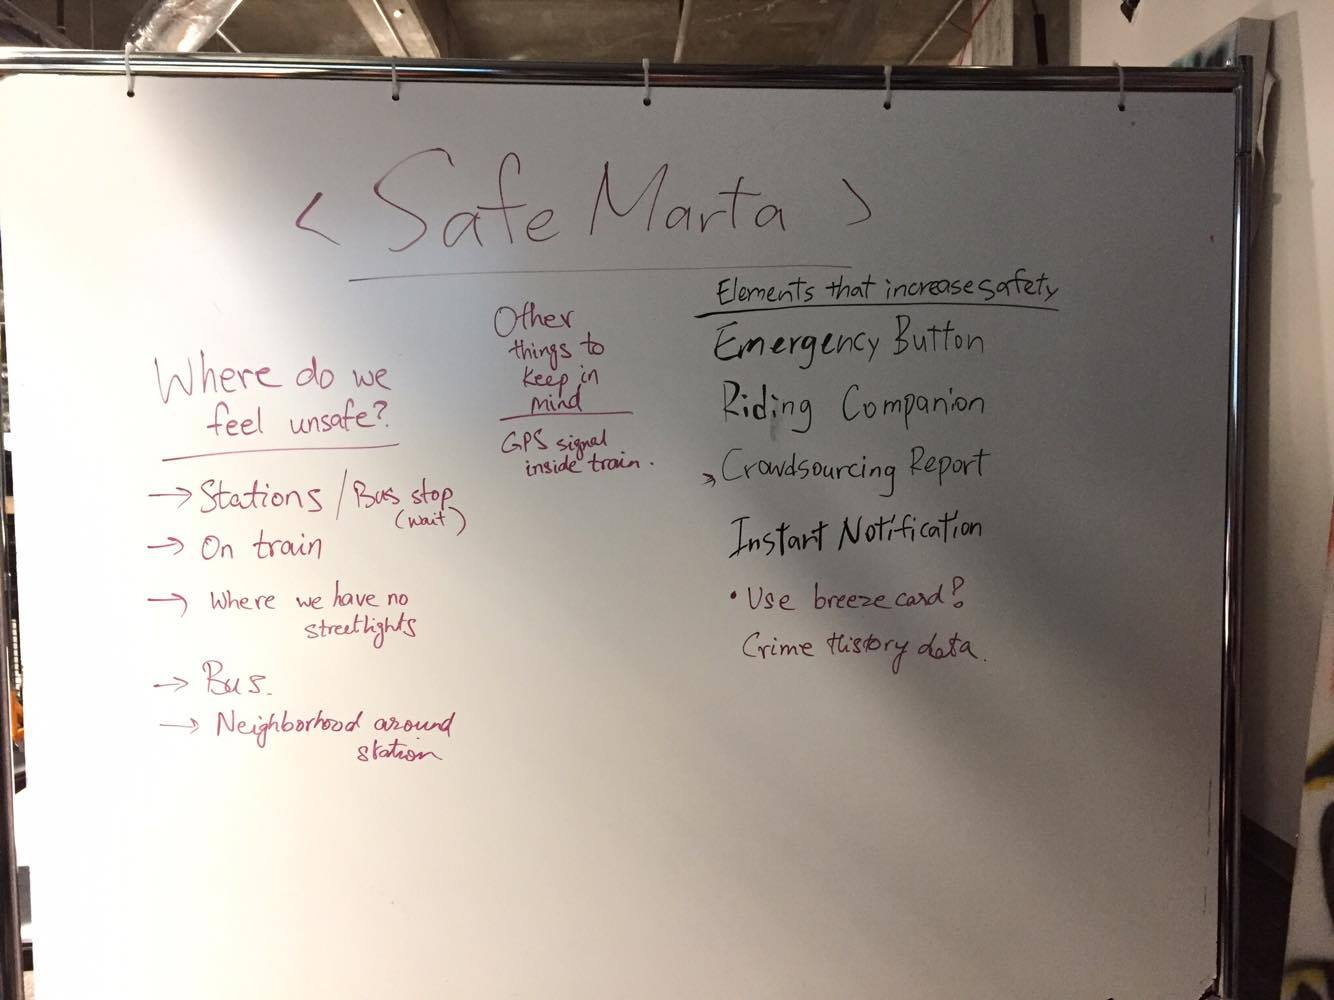 < Safe Marta >
Where do we
feel unsafe?
→ Stations / Bus stop
(wait)
→ On train
→ Where we have no
streetlights
→ Bus.
→ Neighborhood around
station
Other
things to
keep in
mind
GPS signal
inside train.
Elements that increase safety
Emergency Button
Riding Companion
→ Crowdsourcing Report
Instant Notification
• Use breeze card?
Crime History data.